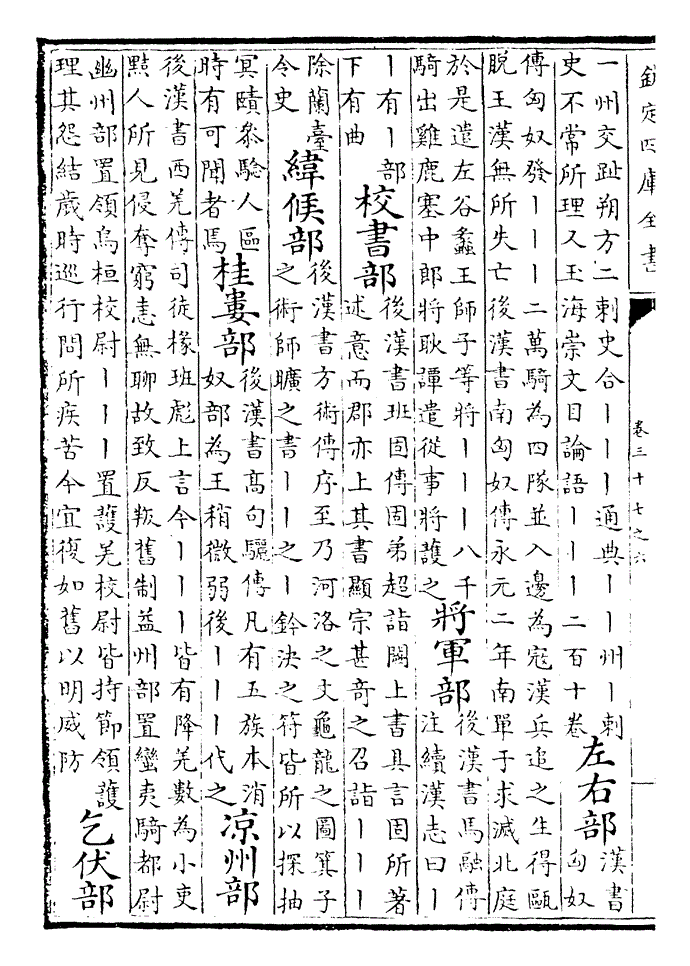 欽定四庫全書
卷三十七之六
一州交趾朔方二刺史合丨丨丨通典丨丨州丨刺
史不常所理又玉海崇文目論語丨丨丨二百十卷
左右部
漢書
匈奴
傳匈奴發丨丨丨二萬騎為四隊並入邊為寇漢兵追之生得甌
脫王漢無所失亡後漢書南匈奴傳永元二年南單于求滅北庭
於是遣左谷蠡王師子等將丨丨丨八千
騎出雞鹿塞中郎將耿譚遣從事將護之
將軍部
後漢書馬融傳
注續漢志曰丨
丨有丨部
下有曲
校書部
後漢書班固傳固弟超詣闕上書具言固所著
述意而郡亦上其書顯宗甚奇之召詣丨丨丨
除蘭臺
令史
緯候部
後漢書方術傳序至乃河洛之文龜龍之圖箕子
之術師曠之書丨丨之丨鈐決之符皆所以探抽
冥賾叅驗人區
時有可聞者焉
桂婁部
後漢書高句驪傳凡有五族本消
奴部為王稍微弱後丨丨丨代之
凉州部
後漢書西羌傳司徒掾班彪上言今丨丨丨皆有降羌數為小吏
黠人所見侵奪窮恚無聊故致反叛舊制益州部置蠻夷騎都尉
幽州部置領烏桓校尉丨丨丨置護羌校尉皆持節領護
理其怨結歲時巡行問所疾苦今宜復如舊以明威防
乞伏部